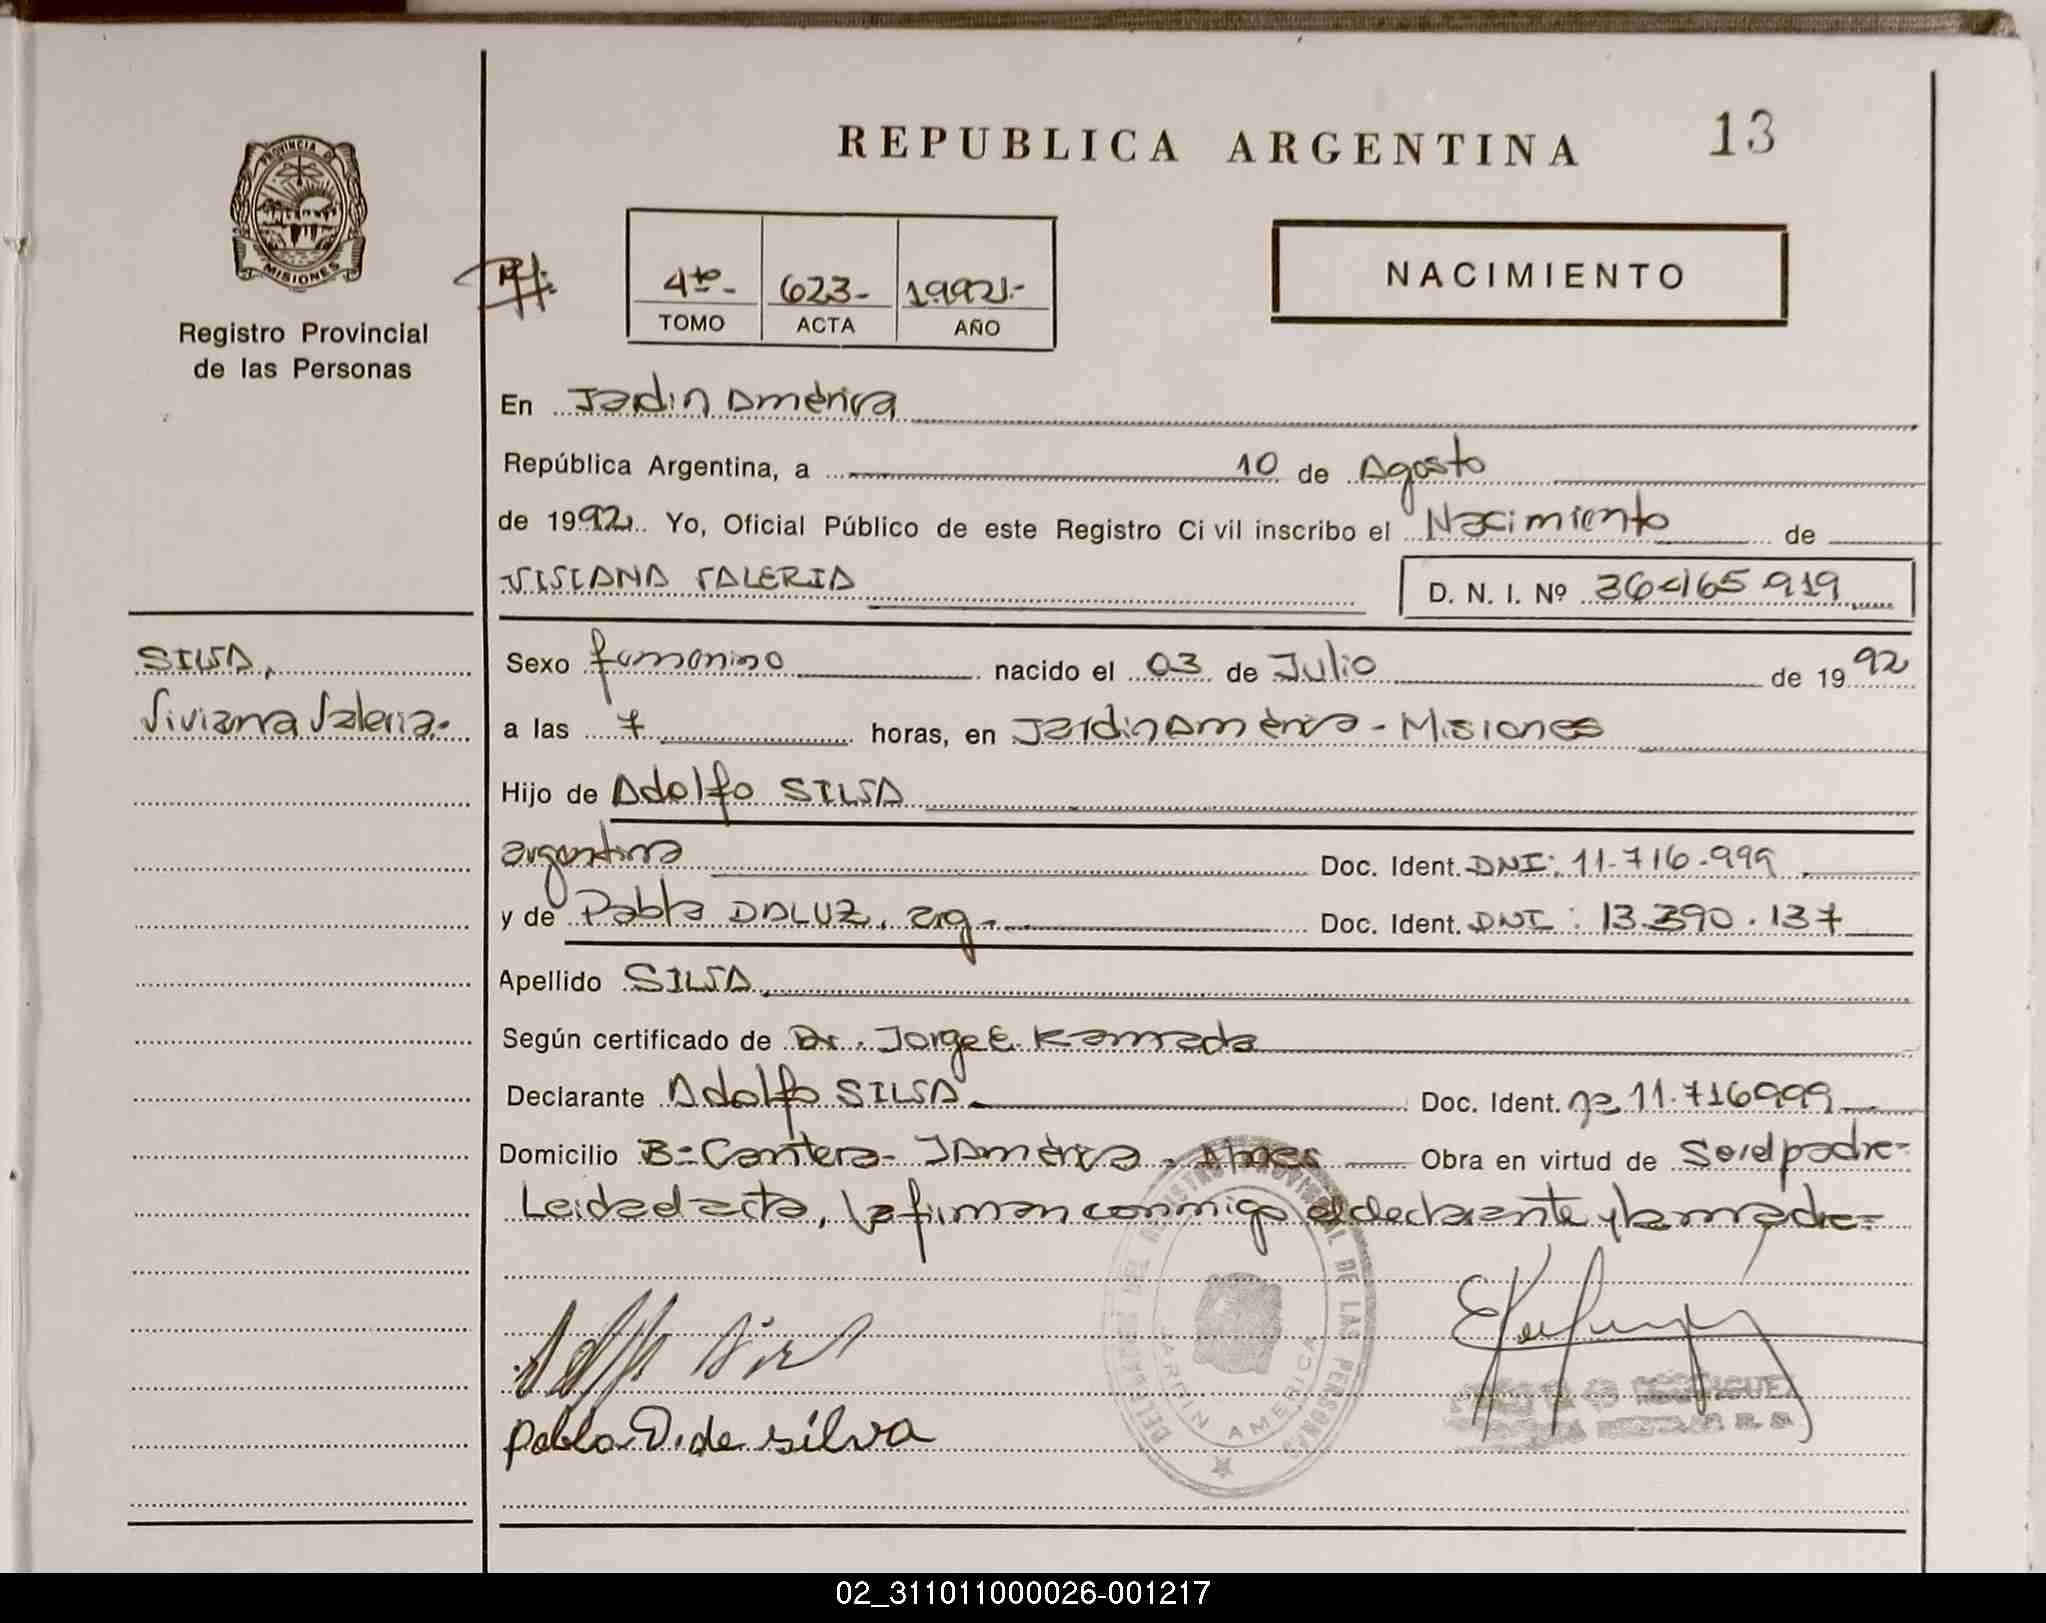 REPUBLICA ARGENTINA
13
PROVINCIA DE
MISIONES
Registro Provincial
de las Personas
4to- 623- 1992.-
TOMO ACTA AÑO
NACIMIENTO
En Jardin América
República Argentina, a 10 de Agosto
de 1992. Yo, Oficial Público de este Registro Civil inscribo el Nacimiento de
VIVIANA VALERIA D. N. I. Nº 36465919
SILVA,
Viviana Valeria.
Sexo femenino nacido el 03 de Julio de 1992
a las 7 horas, en Jardin América - Misiones
Hijo de Adolfo SILVA
argentina Doc. Ident. DNI: 11.716.999
y de Pabla DALUZ, arg. Doc. Ident. DNI: 13.390.137
Apellido SILVA
Según certificado de Dr. Jorge E. Kamada
Declarante Adolfo SILVA Doc. Ident. 11.716999
Domicilio Bº Cantera - J América. Mnes Obra en virtud de Ser el padre=
Leida el acta, la firman conmigo el declarante y la madre=
DELEGACION DEL REGISTRO PROVINCIAL DE LAS PERSONAS
JARDIN AMERICA
Adolfo Silva
pabla D. de silva
02_311011000026-001217